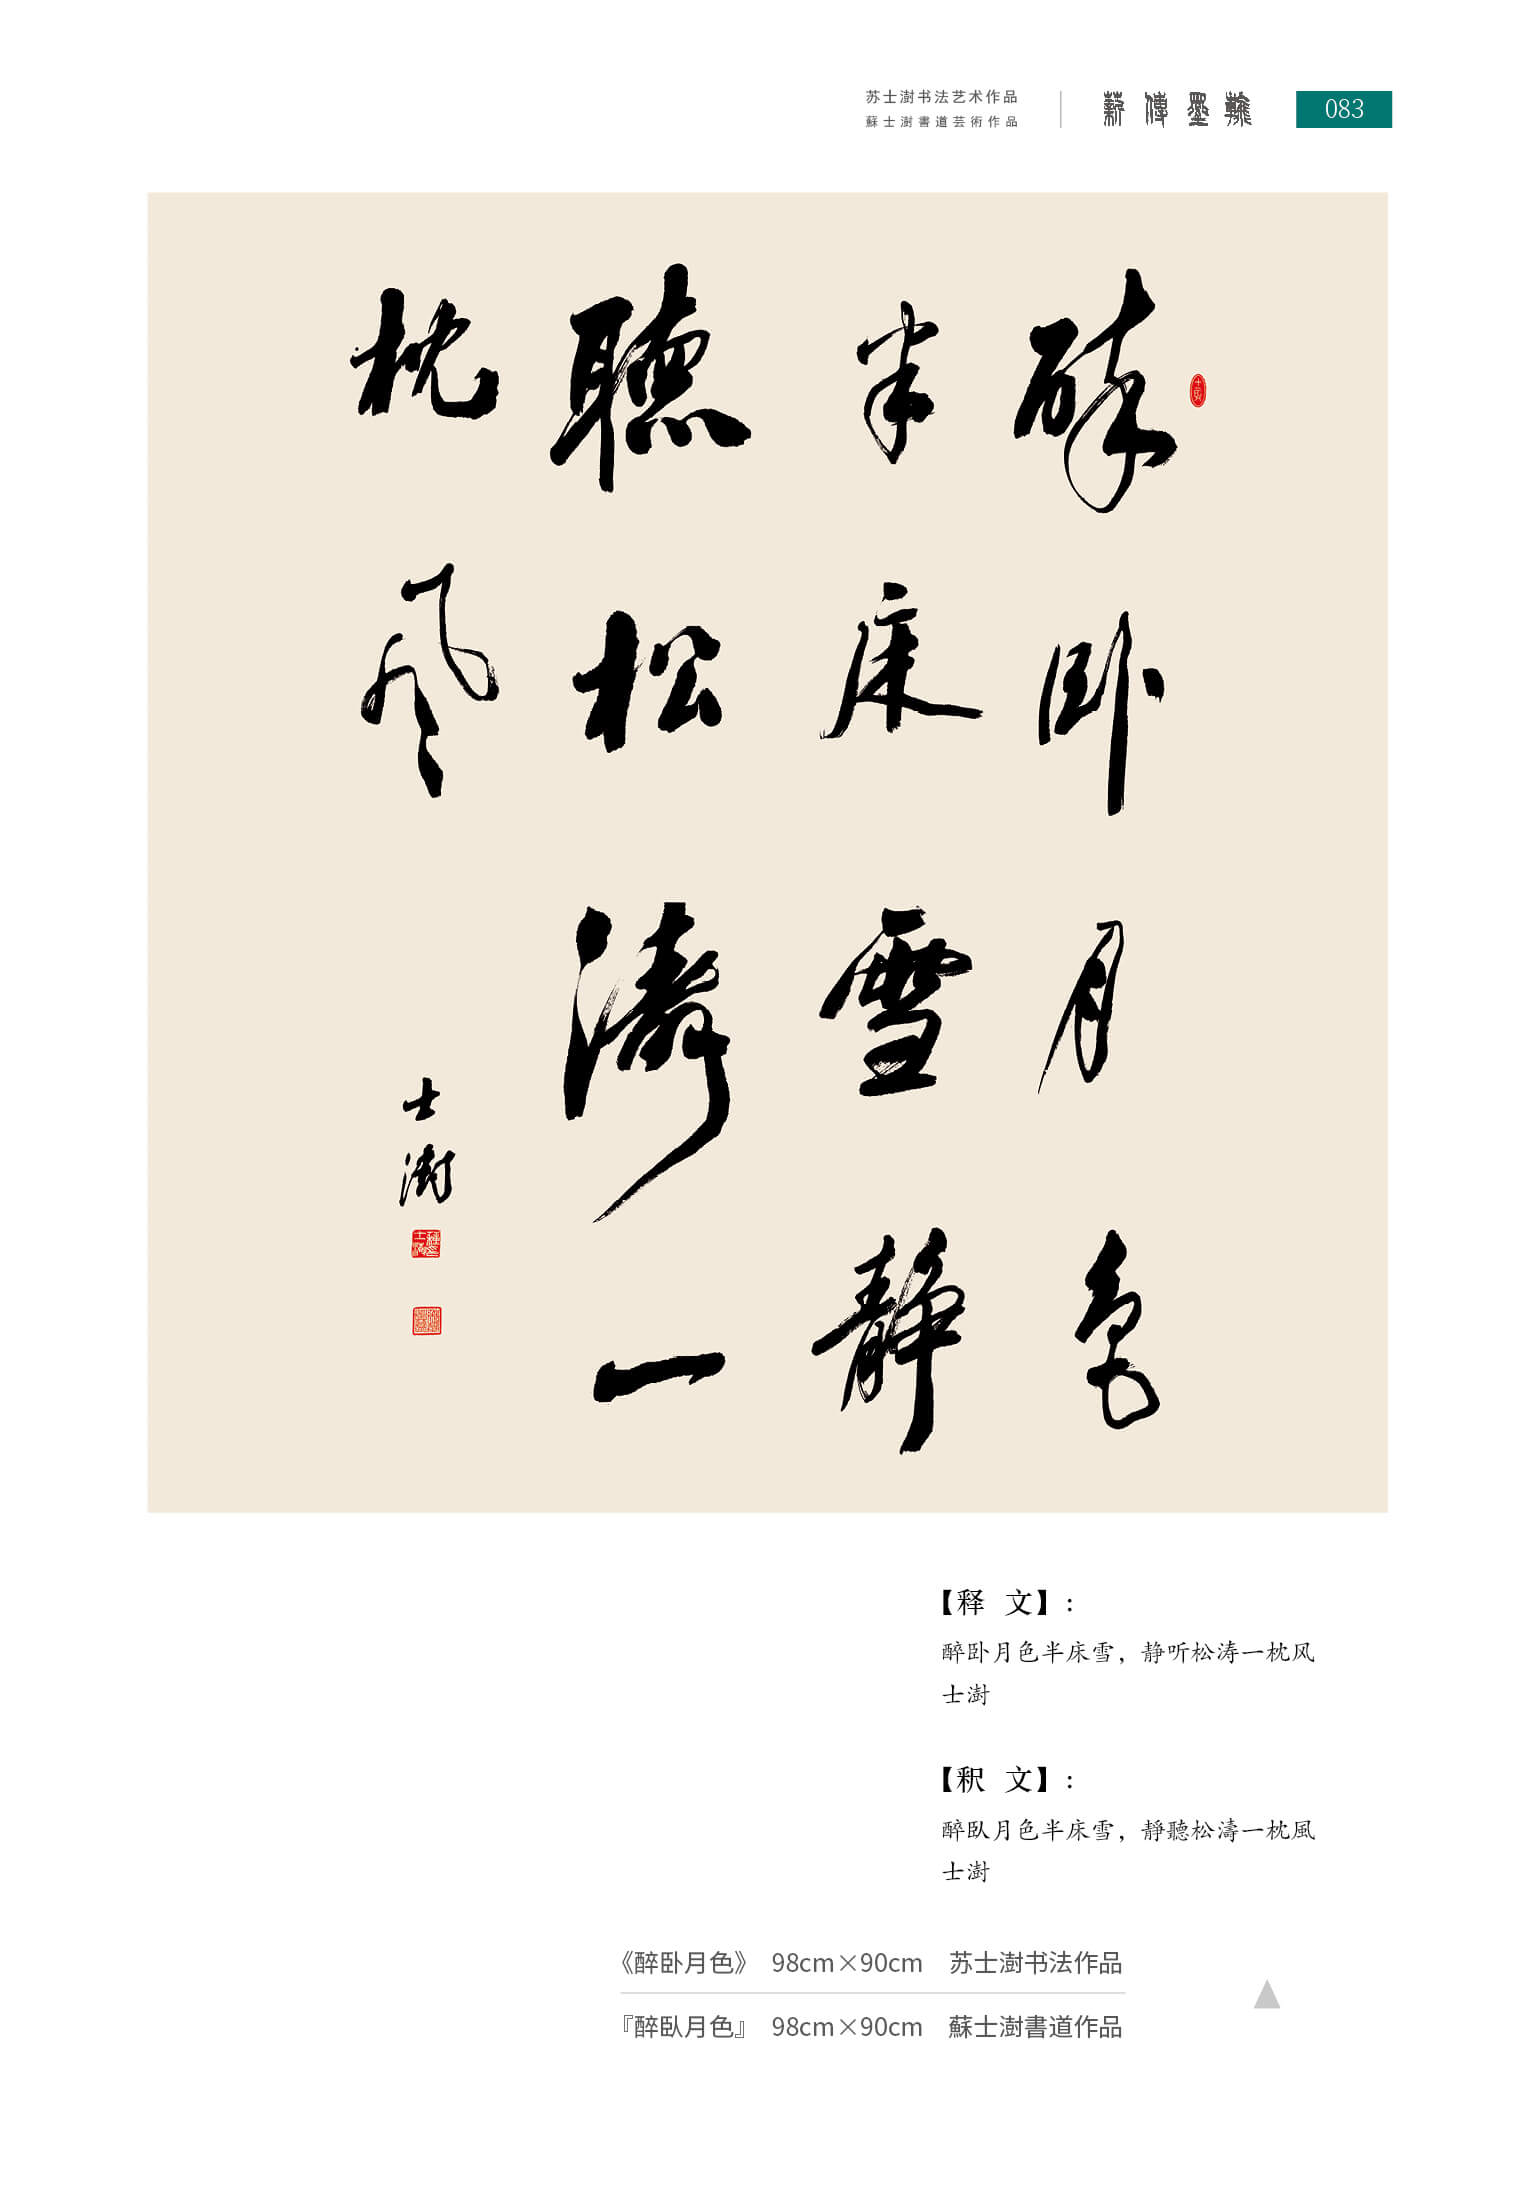 苏士澍书法艺术作品
蘇士澍書道芸術作品
薪傳墨韻
083
醉卧月色
半床雪静
聽松濤一
枕风
士澍
【释 文】:
醉卧月色半床雪，静听松涛一枕风
士澍
【釈 文】:
醉臥月色半床雪，静聽松濤一枕風
士澍
《醉卧月色》 98cm×90cm 苏士澍书法作品
『醉臥月色』 98cm×90cm 蘇士澍書道作品